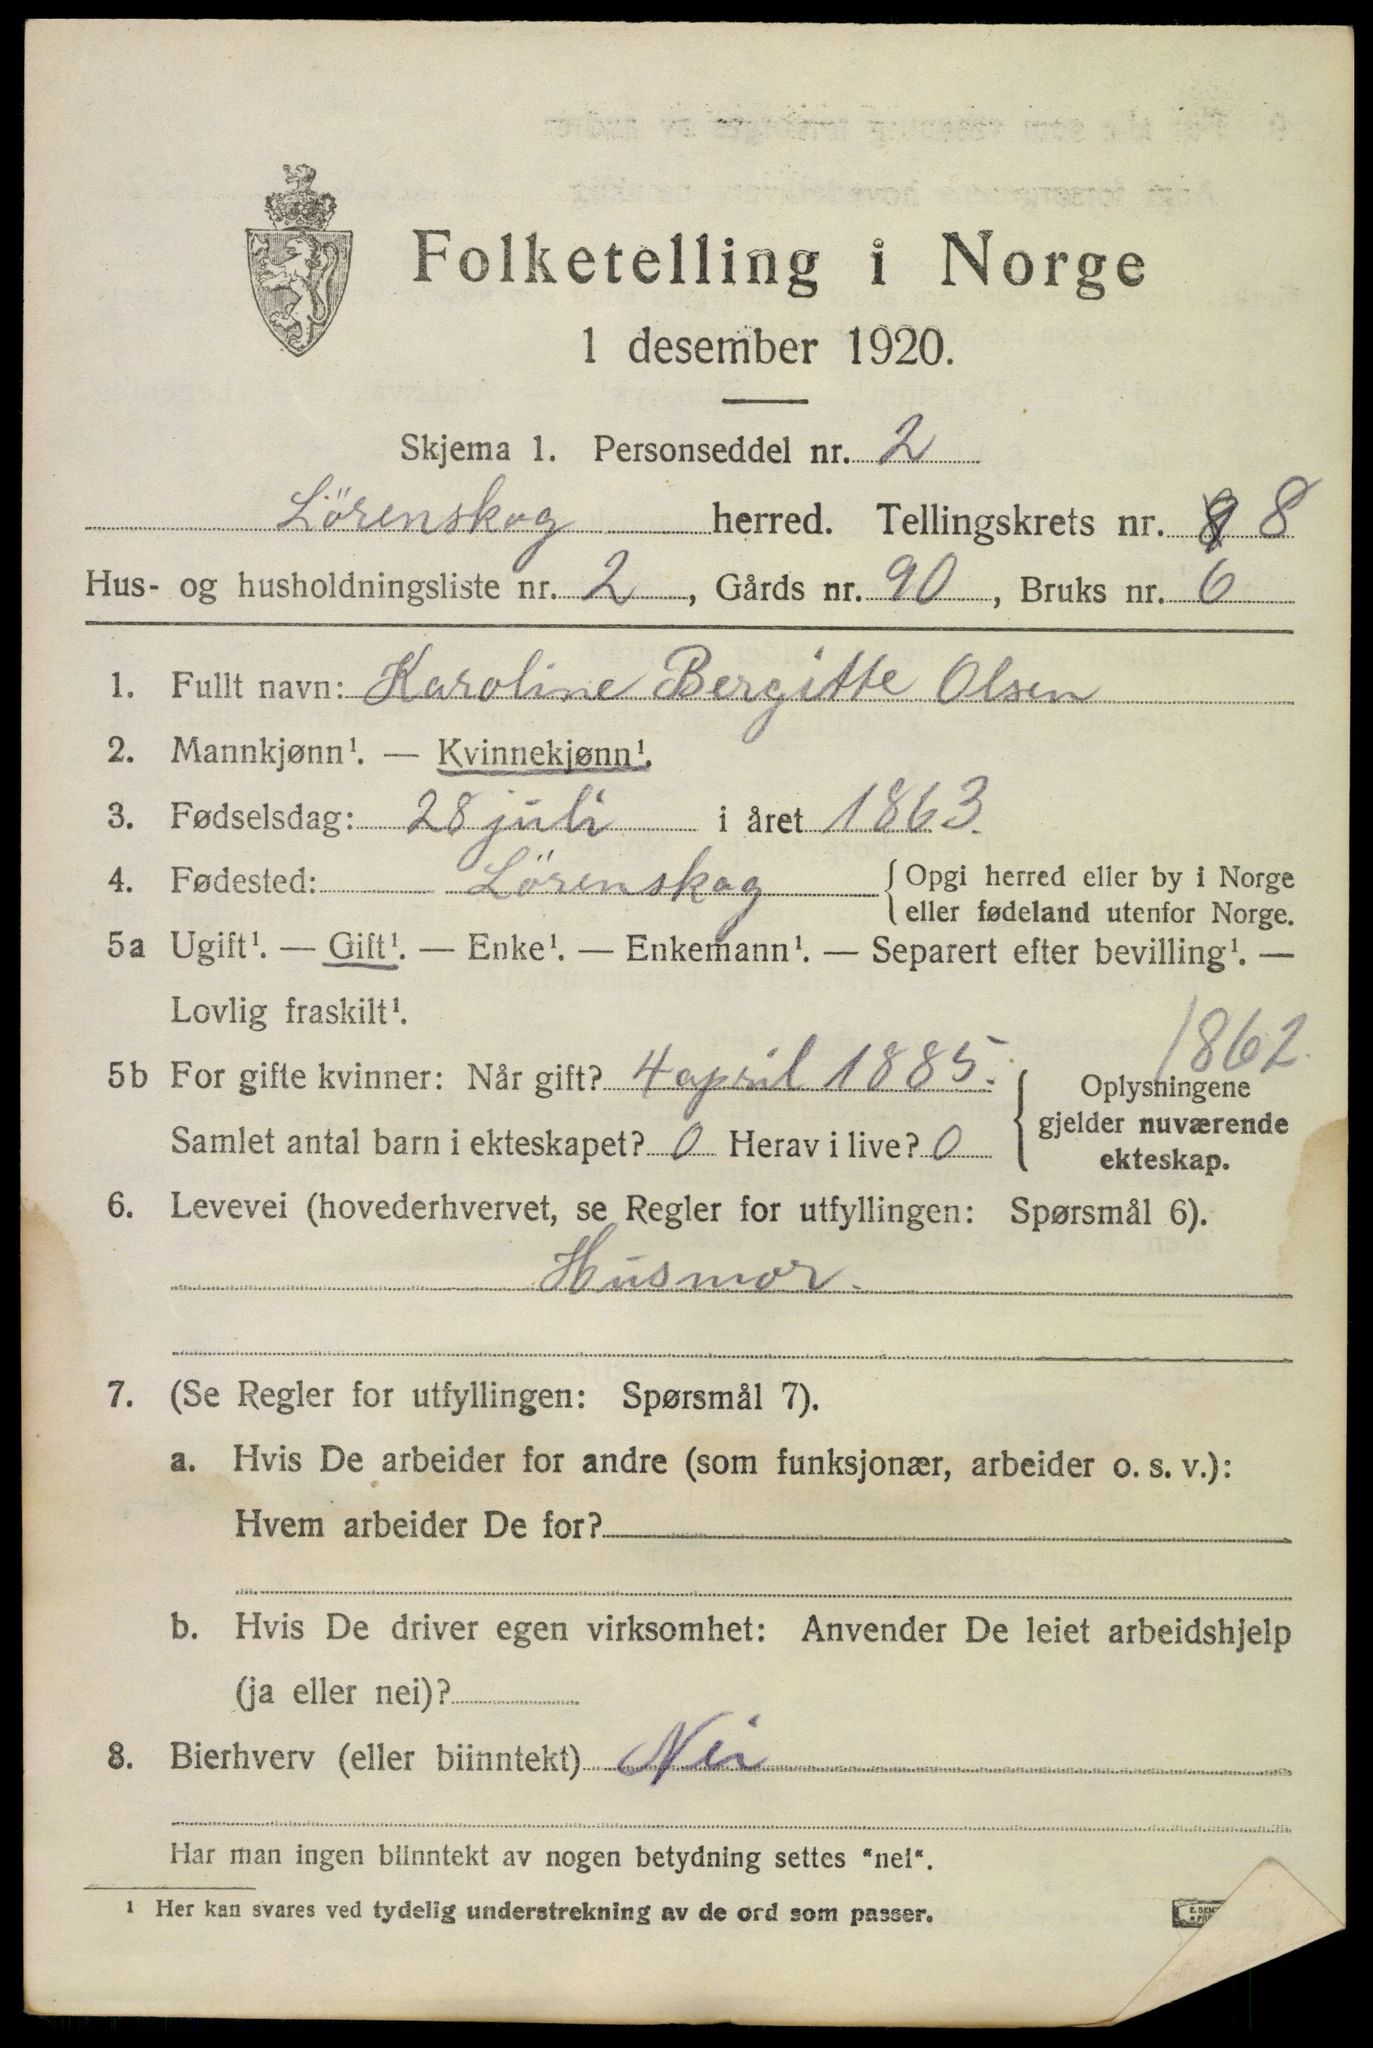 Folketelling i Norge
1 desember 1920.
Skjema 1. Personseddel nr. 2
Lörenskog herred. Tellingskrets nr. 8
Hus- og husholdningsliste nr. 2, Gårds nr. 90, Bruks nr. 6
1. Fullt navn: Karoline Bergitte Olsen
2. Mannkjønn¹. — Kvinnekjønn¹.
3. Fødselsdag: 28 juli i året 1863.
4. Fødested: Lörenskog { Opgi herred eller by i Norge
eller fødeland utenfor Norge.
5a Ugift¹. — Gift¹. — Enke¹. — Enkemann¹. — Separert efter bevilling¹. —
Lovlig fraskilt¹.
1862.
5b For gifte kvinner: Når gift? 4 april 1885. { Oplysningene
gjelder nuværende
Samlet antal barn i ekteskapet? 0 Herav i live? 0
ekteskap.
6. Levevei (hovederhvervet, se Regler for utfyllingen: Spørsmål 6).
Husmor.
7. (Se Regler for utfyllingen: Spørsmål 7).
a. Hvis De arbeider for andre (som funksjonær, arbeider o. s. v.):
Hvem arbeider De for?
b. Hvis De driver egen virksomhet: Anvender De leiet arbeidshjelp
(ja eller nei)?
8. Bierhverv (eller biinntekt) Nei
Har man ingen biinntekt av nogen betydning settes "nei".
¹ Her kan svares ved tydelig understrekning av de ord som passer.